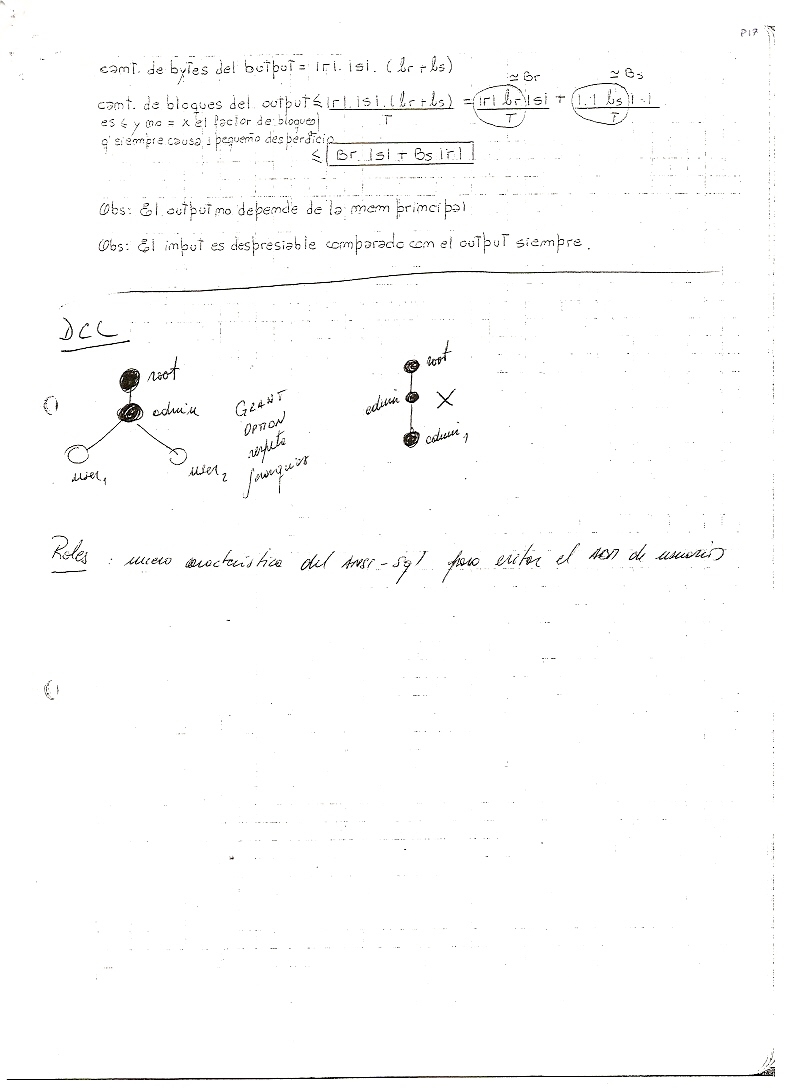 P17
cant. de bytes del output = |r|. |s|. (lr + ls)
≃ Br ≃ Bs
cant. de bloques del output ≤ |r|. |s|. (lr + ls) / T = |r| lr / T |s| + |.| ls / T |.|
es ≤ y no = x el factor de bloqueo
q siempre causa 1 pequeño desperdicio
≤ Br |s| + Bs |r|
Obs: El output no depende de la mem principal
Obs: El input es despresiable comparado con el output siempre.
DCL
root
admin
user1
user2
GRANT
OPTION
respeta
jerarquias
root
admin X
admin1
Roles: nueva característica del ANSI-Sql para evitar el de usuarios